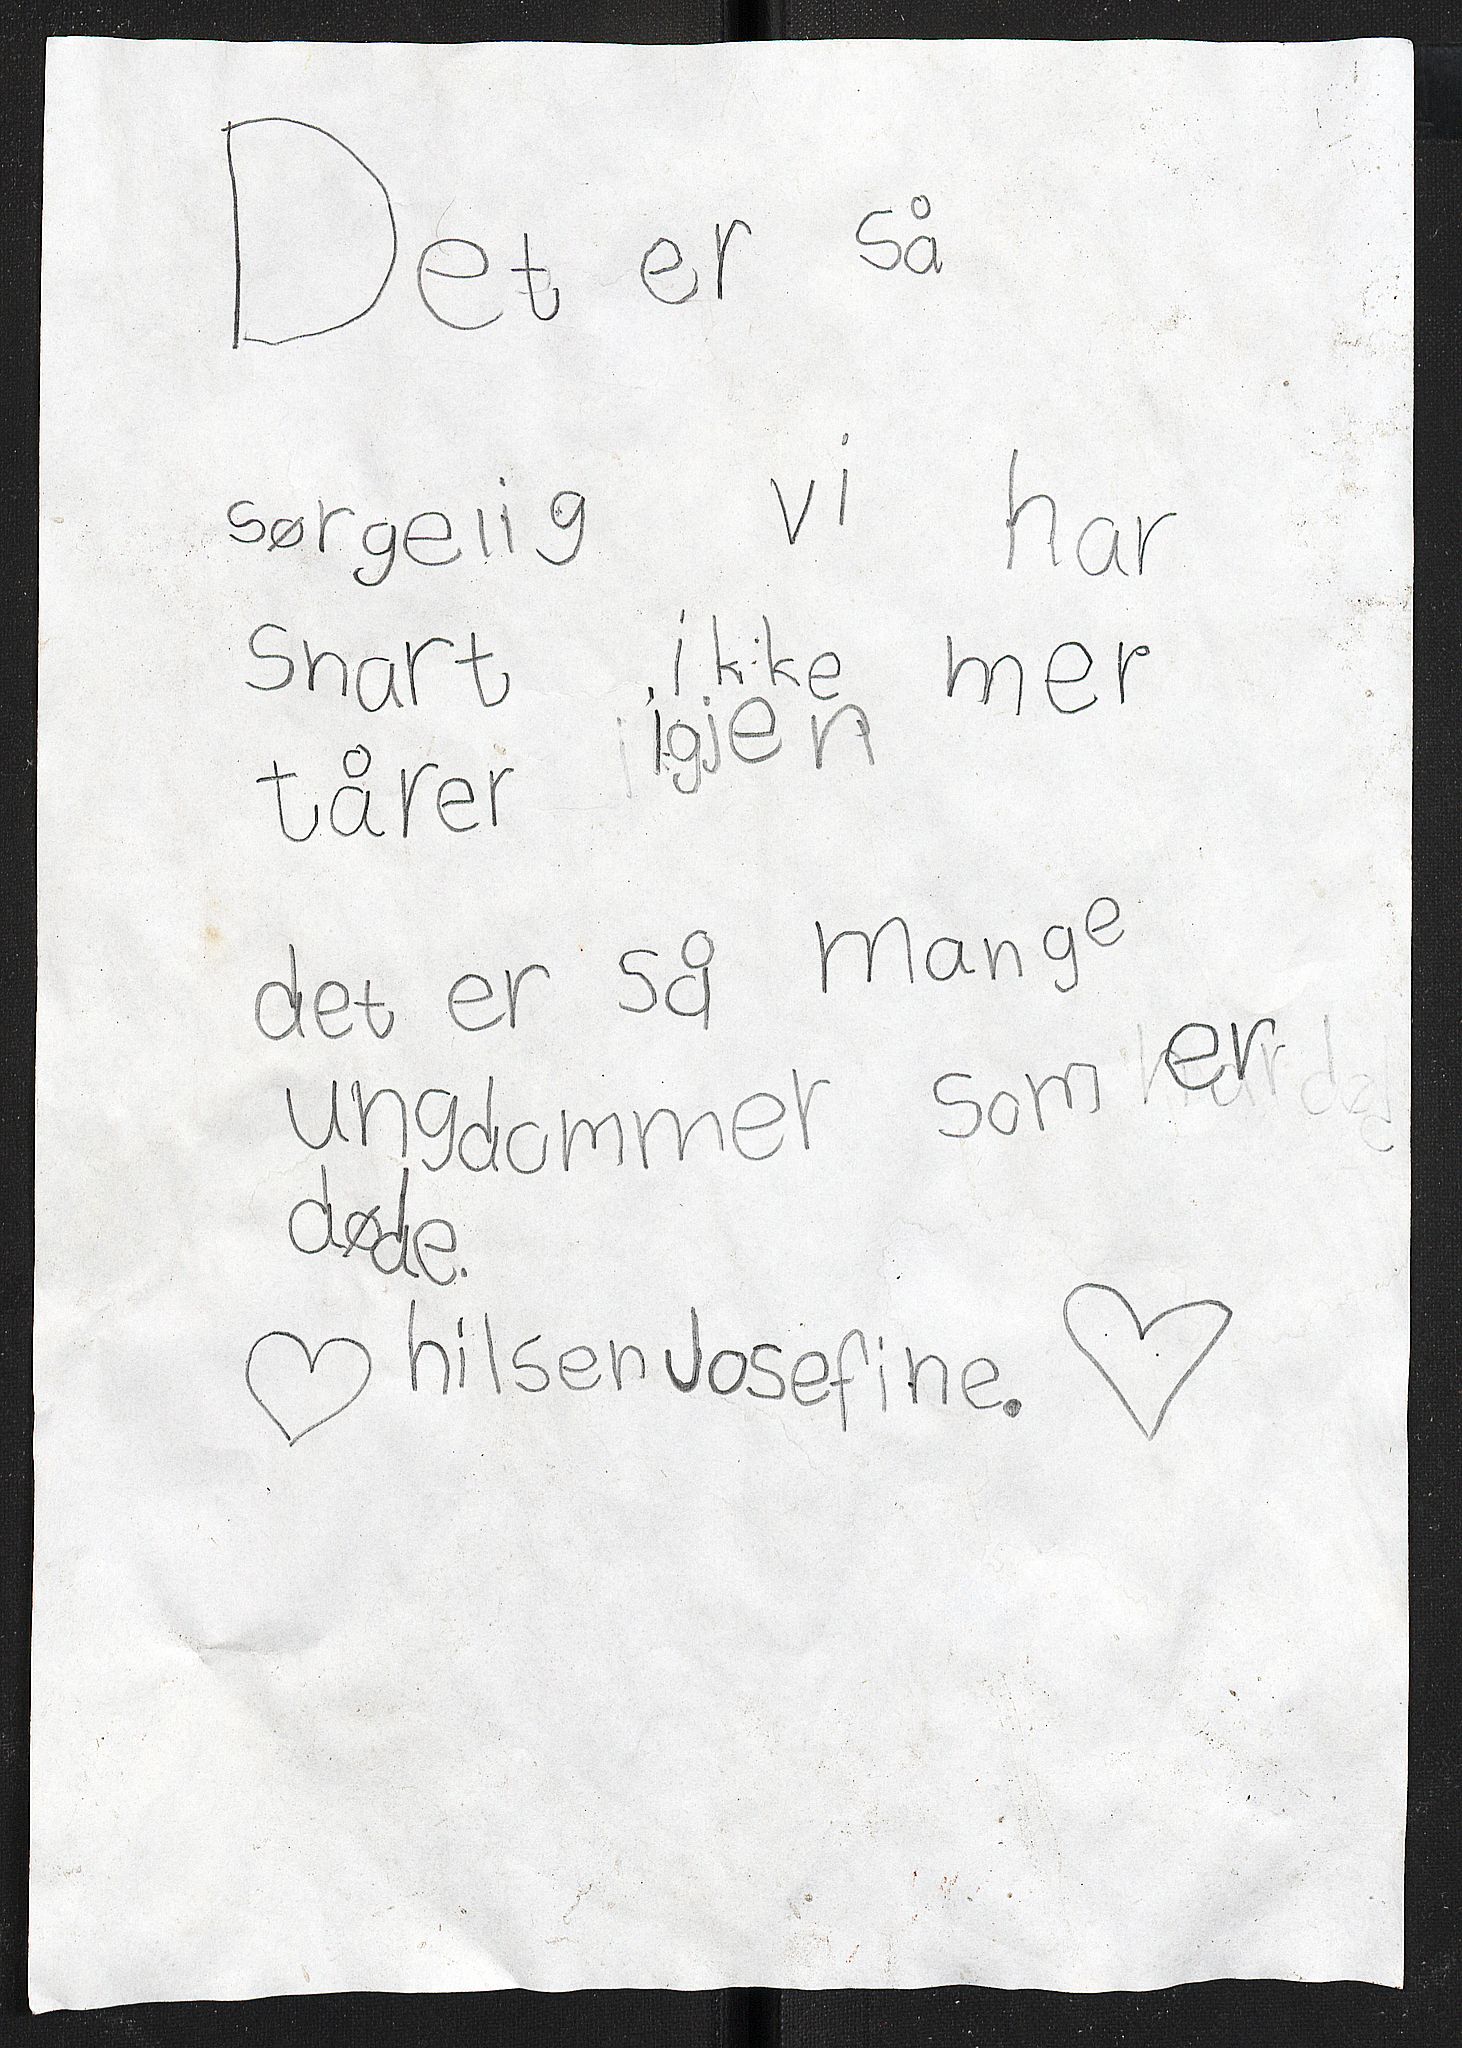 Det er så
sørgelig vi har
snart ikke mer
tårer igjen
det er så mange
ungdommer som er
døde.
♡ hilsen Josefine. ♡